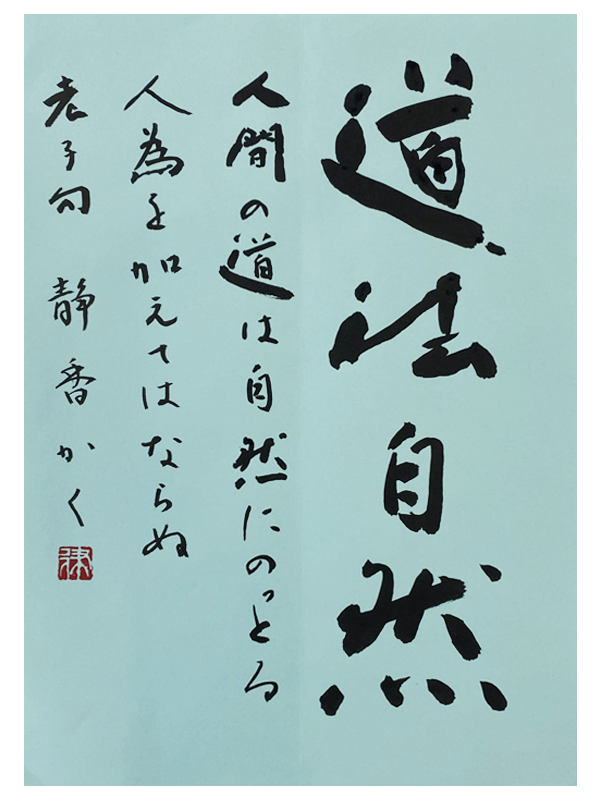 道法自然
人間の道は自然にのっとる
人為を加えてはならぬ
老子句 静香かく